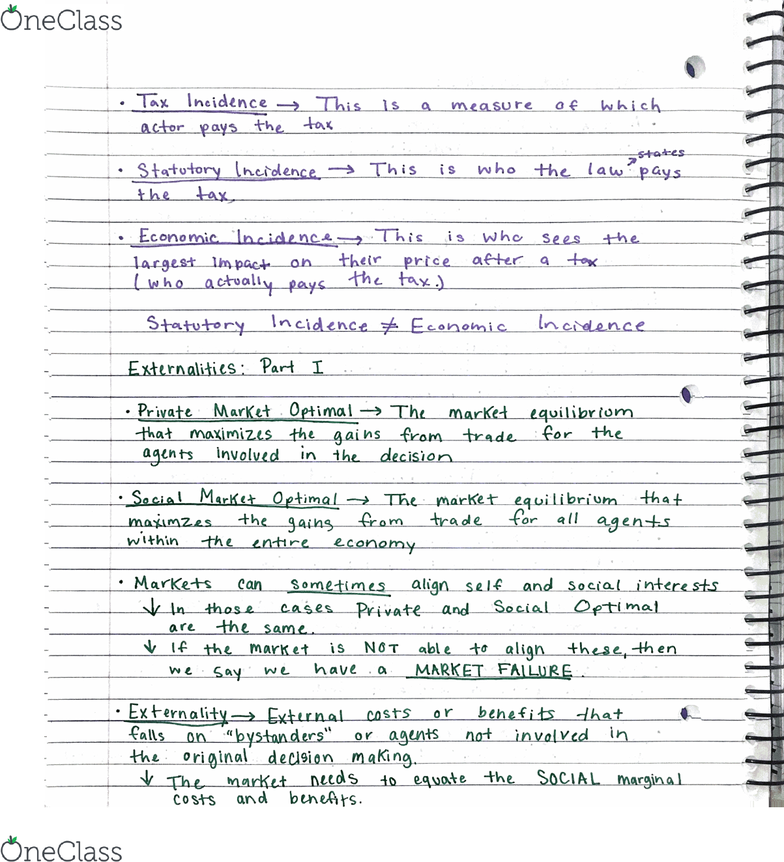 OneClass
• Tax Incidence → This is a measure of which
actor pays the tax
• Statutory Incidence → This is who the law states pays
the tax
• Economic Incidence → This is who sees the
largest impact on their price after a tax
(who actually pays the tax.)
Statutory Incidence ≠ Economic Incidence
Externalities: Part I
• Private Market Optimal → The market equilibrium
that maximizes the gains from trade for the
agents involved in the decision
• Social Market Optimal → The market equilibrium that
maximzes the gains from trade for all agents
within the entire economy
• Markets can sometimes align self and social interests
↓ In those cases Private and Social Optimal
are the same.
↓ If the market is NOT able to align these, then
we say we have a MARKET FAILURE.
• Externality → External costs or benefits that
falls on "bystanders" or agents not involved in
the original decision making.
↓ The market needs to equate the SOCIAL marginal
costs and benefits.
OneClass